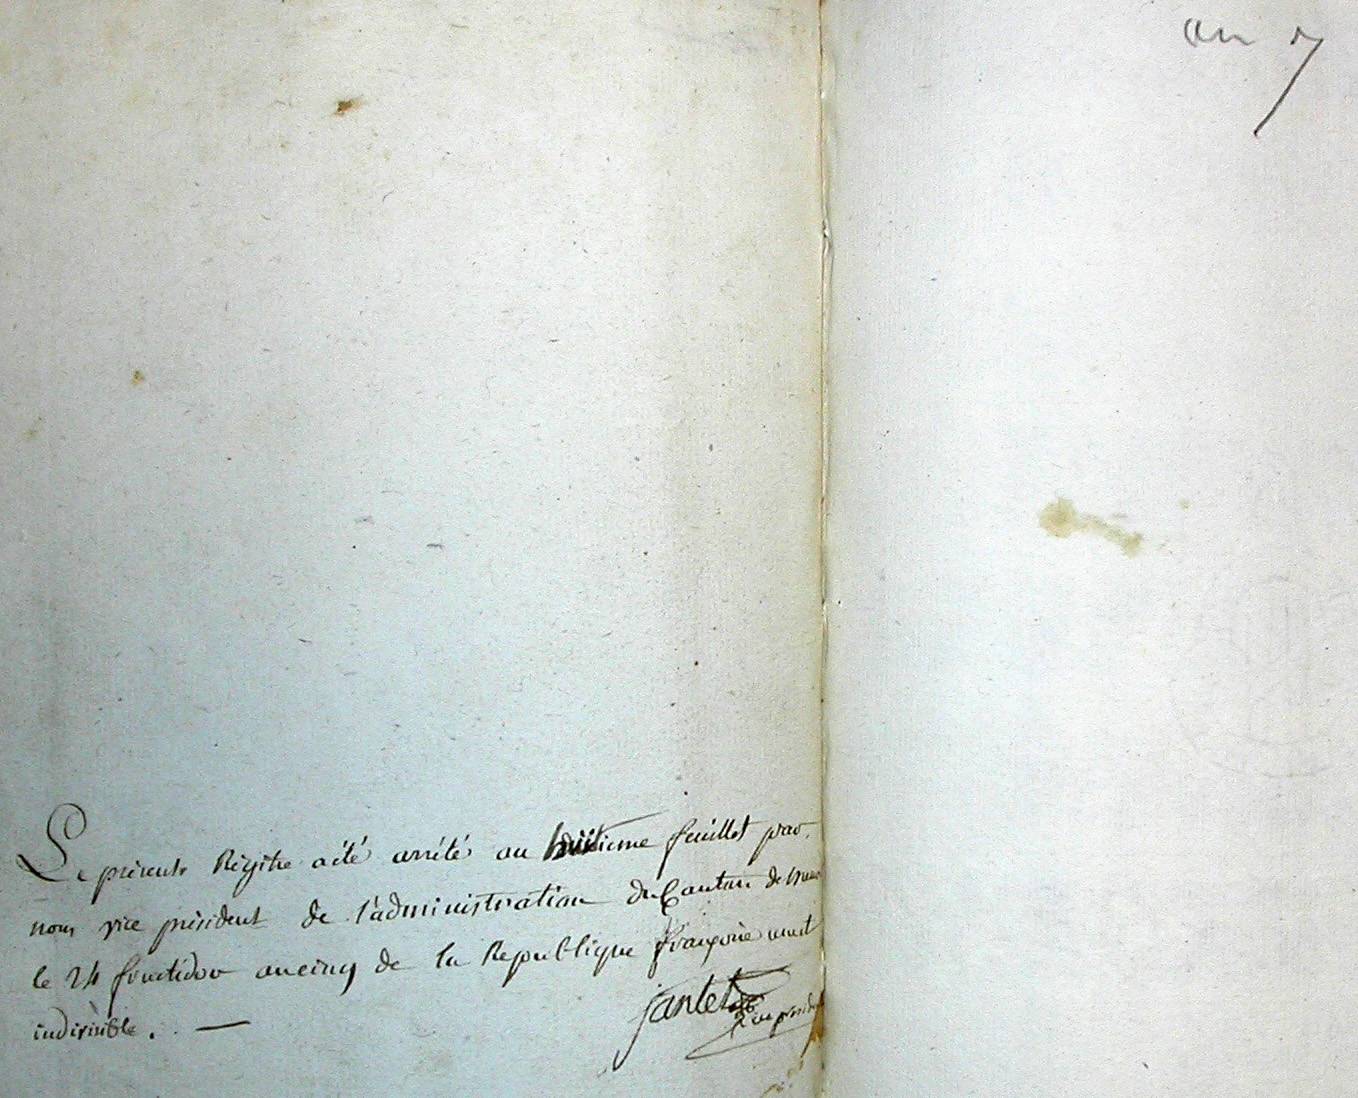 Le présent Régitre a été arrété au huitieme feuillet par
nous vice président de l'administration du Canton de
le 24 fructidor an cinq de la Republique françoise une et
indivisible. —
jantet
vice président
an 7